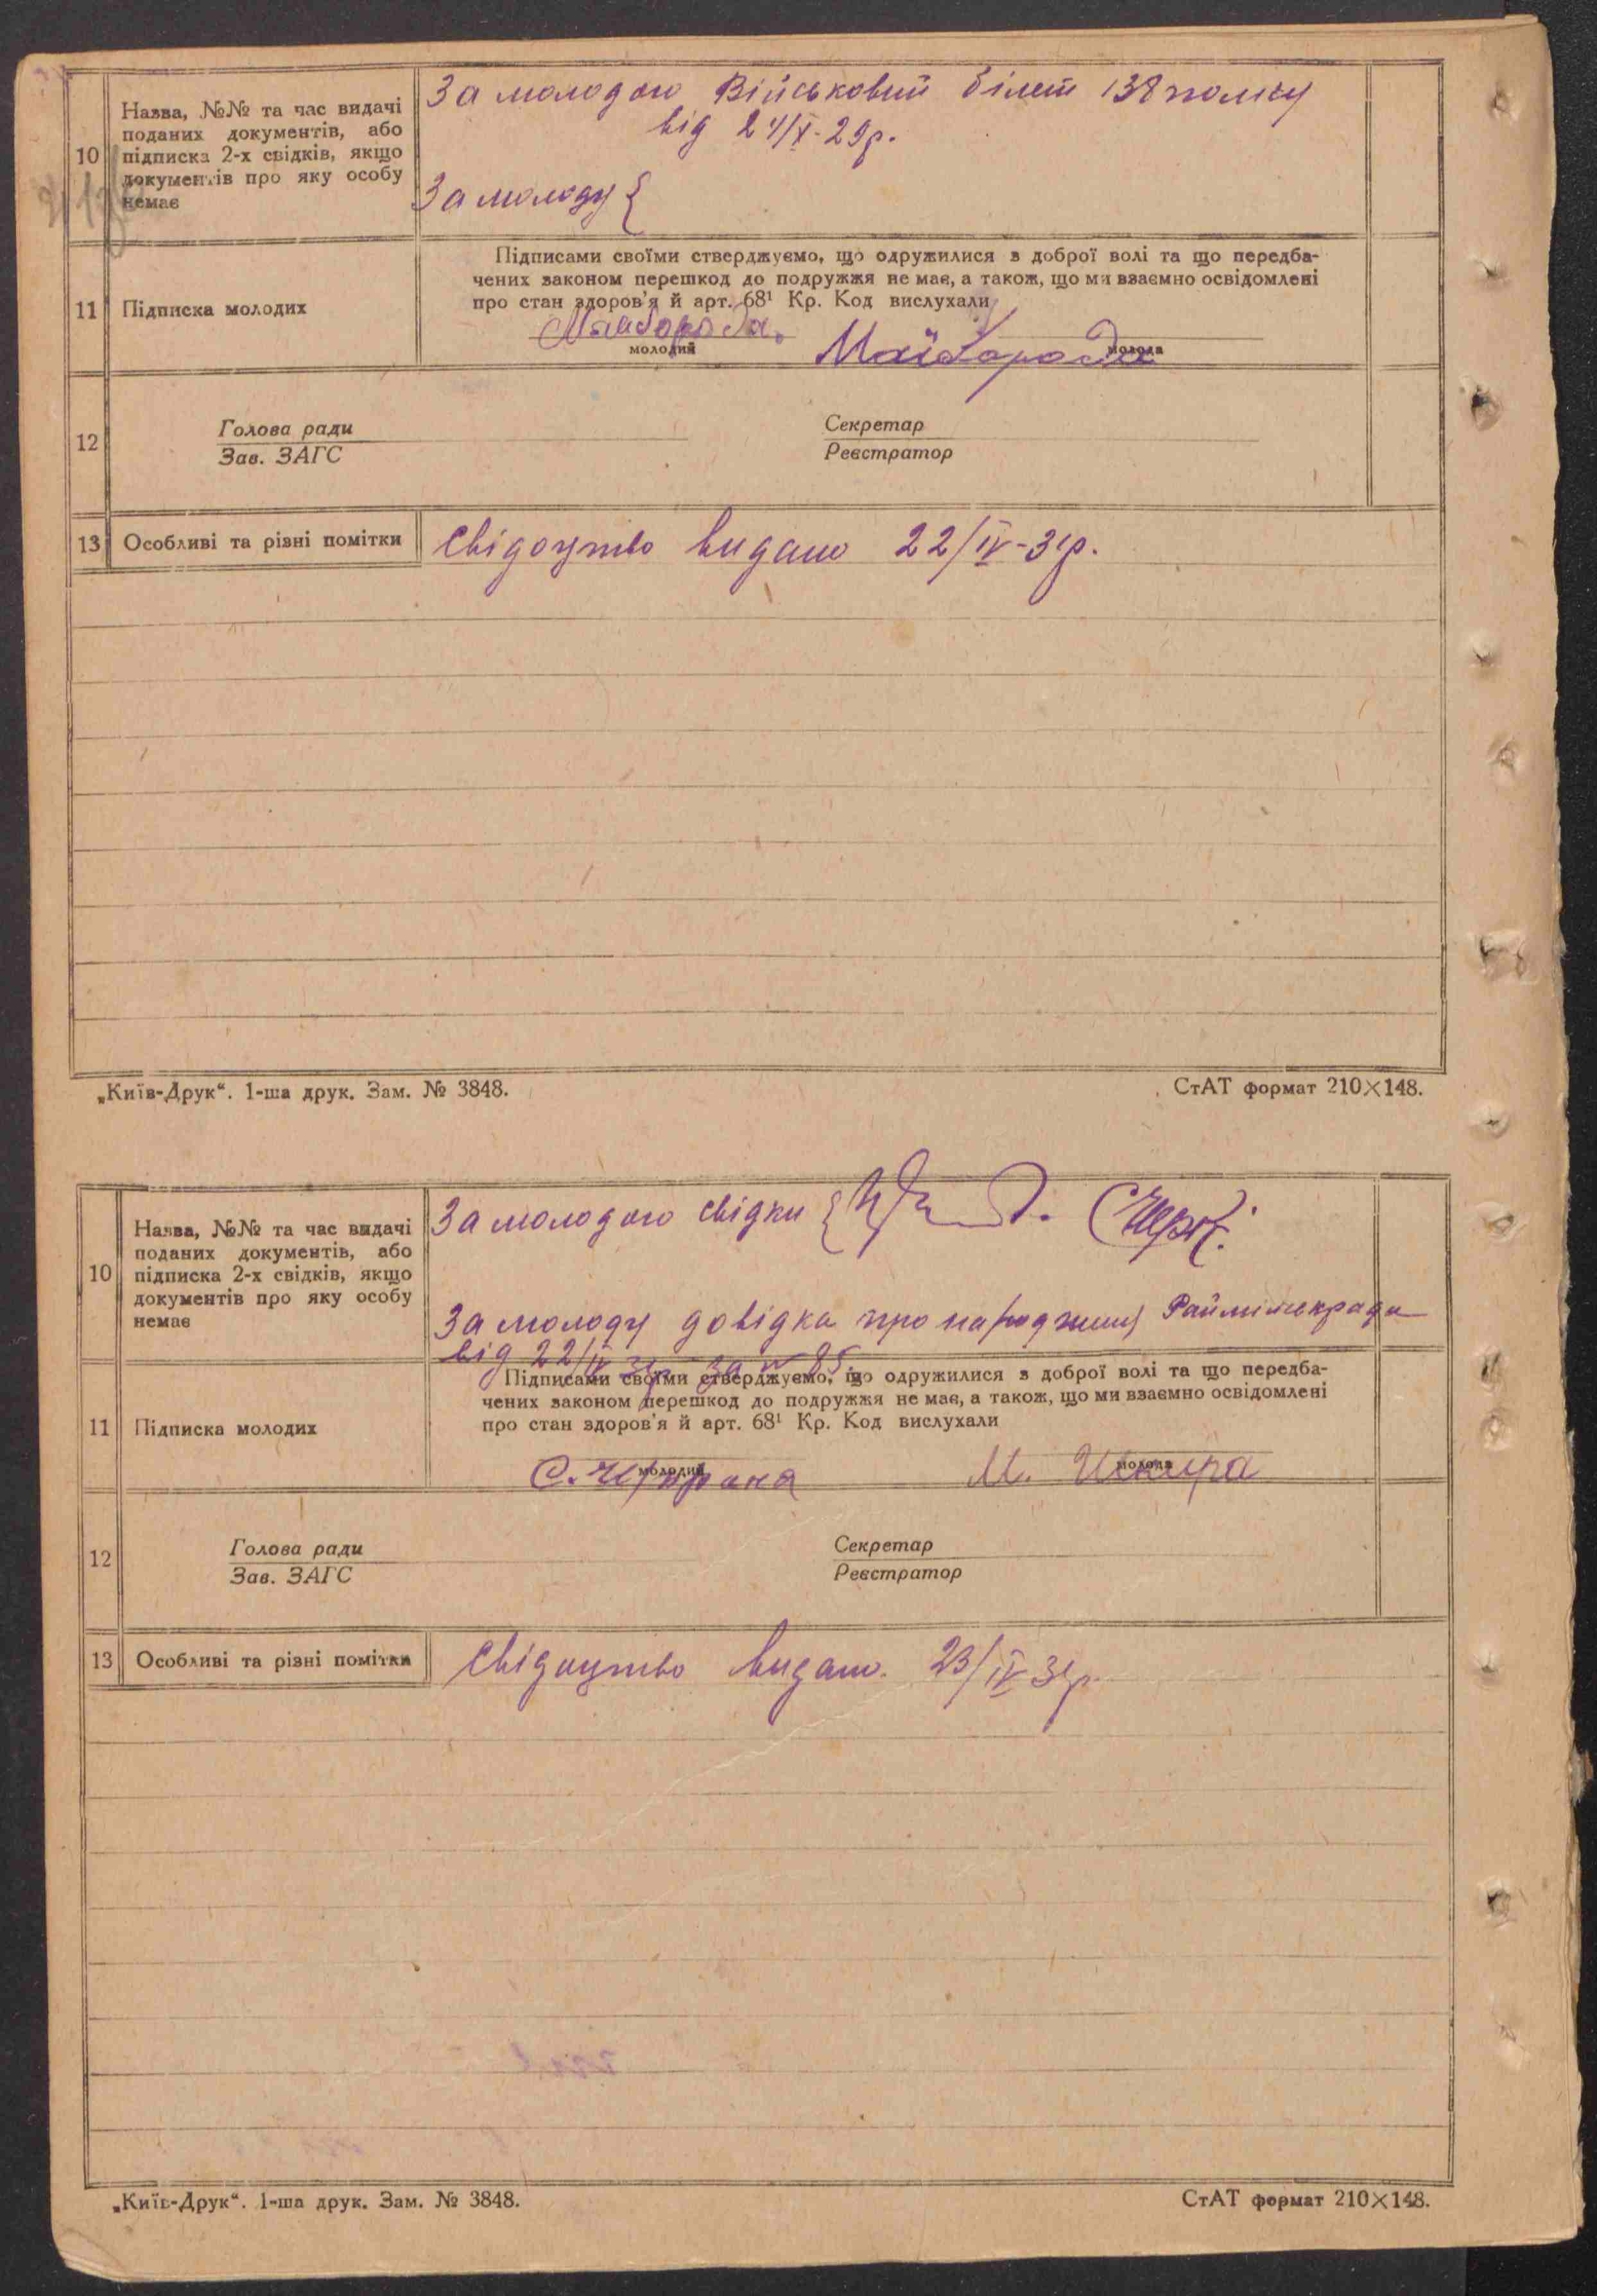 10
Назва, №№ та час видачі
поданих документів, або
підписка 2-х свідків, якщо
документів про яку особу
немає
За молодого Військовий білет 138 полку
від 24/X-29р.
За молоду {
11
Підписка молодих
Підписами своїми стверджуємо, що одружилися з доброї волі та що передба-
чених законом перешкод до подружжя не має, а також, що ми взаємно освідомлені
про стан здоров'я й арт. 68¹ Кр. Код вислухали
Майборода
молодий
Майборода
молода
12
Голова ради
Зав. ЗАГС
Секретар
Реєстратор
13
Особливі та різні помітки
Свідоцтво видано 22/IV-34р.
„Київ-Друк“. 1-ша друк. Зам. № 3848.
СтАТ формат 210×148.
10
Назва, №№ та час видачі
поданих документів, або
підписка 2-х свідків, якщо
документів про яку особу
немає
За молодого свідки {
За молоду довідка про народження
від 22/IV 34р за № 85
11
Підписка молодих
Підписами своїми стверджуємо, що одружилися з доброї волі та що передба-
чених законом перешкод до подружжя не має, а також, що ми взаємно освідомлені
про стан здоров'я й арт. 68¹ Кр. Код вислухали
С.
молодий
М. Шкира
молода
12
Голова ради
Зав. ЗАГС
Секретар
Реєстратор
13
Особливі та різні помітки
Свідоцтво видано. 23/IV-34р.
„Київ-Друк“. 1-ша друк. Зам. № 3848.
СтАТ формат 210×148.